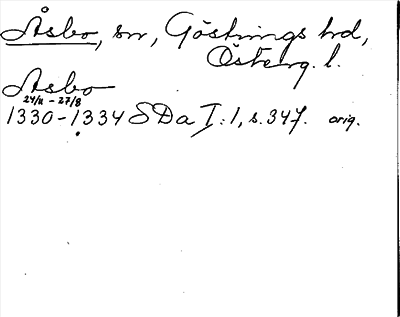 Åsbo, sn, Göstrings hd,
Österg. l.
Asbo
24/11 - 27/8
1330-1334 SDa I:1, s. 347. orig.